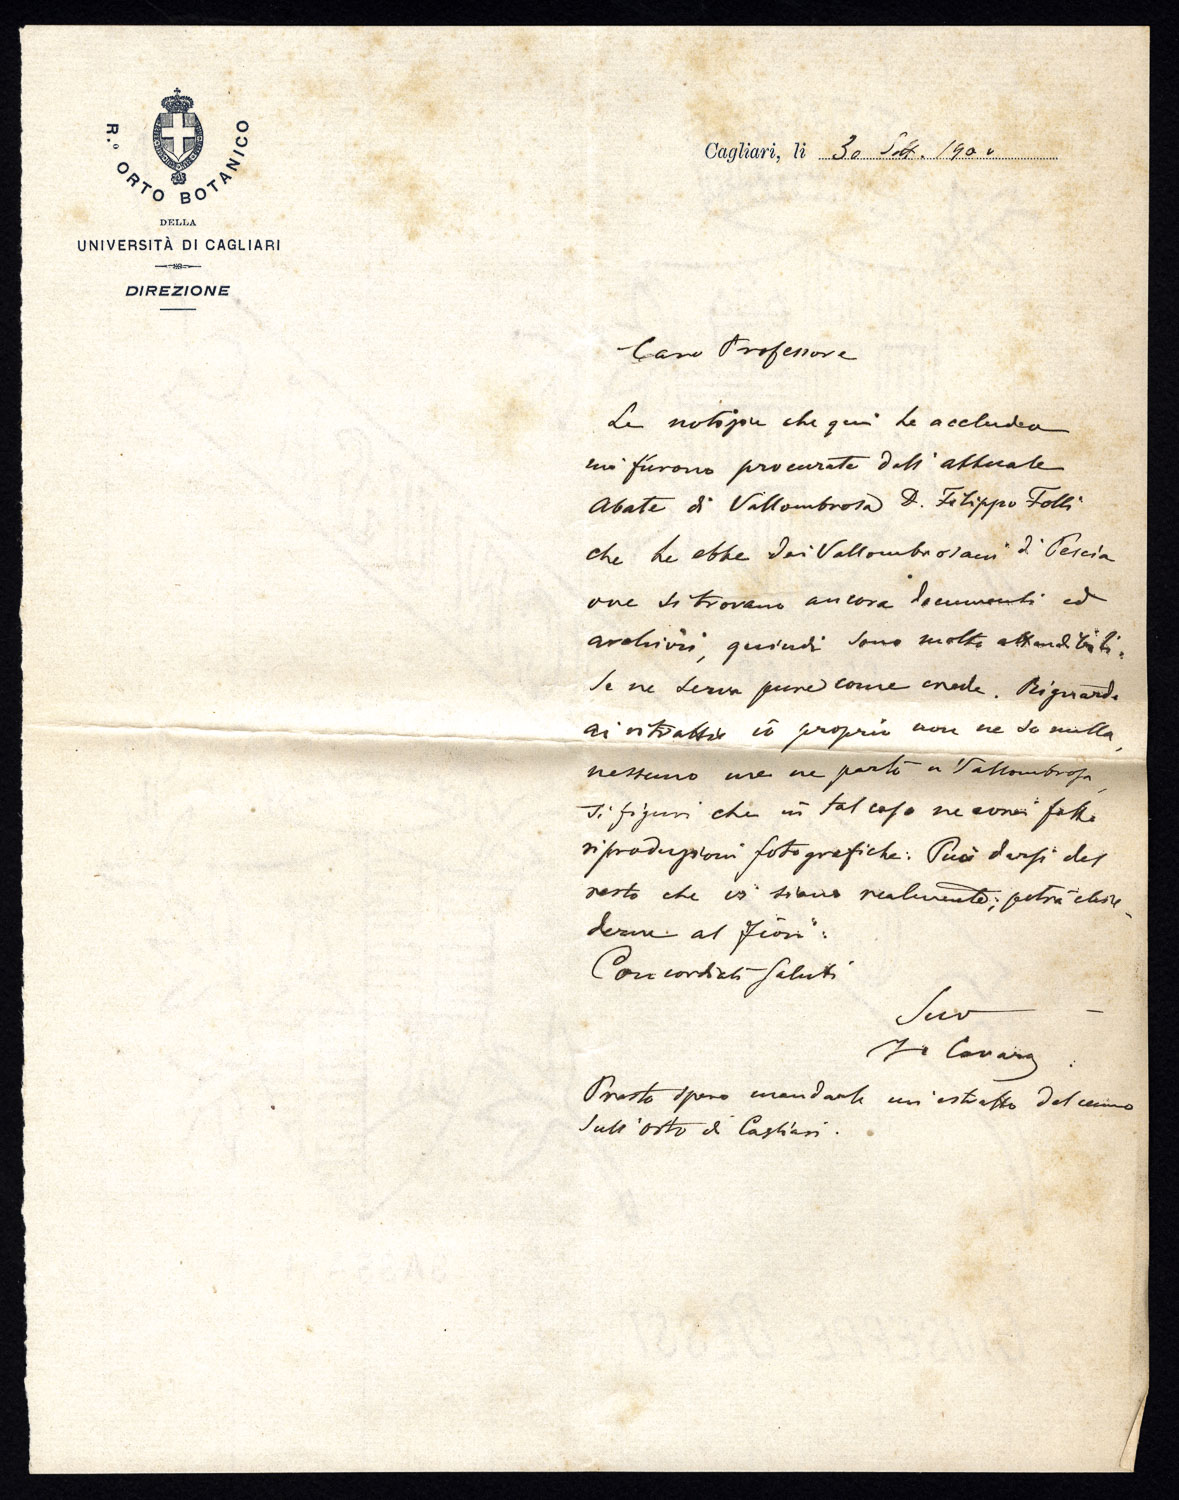 R.° ORTO BOTANICO
DELLA
UNIVERSITÀ DI CAGLIARI
DIREZIONE
Cagliari, li 30 Sett. 1900
Caro Professore
Le notizie che qui Le accludo
mi furono procurate dall'attuale
Abate di Vallombrosa D. Filippo Folli
che le ebbe dai Vallombrosani di Pescia
ove si trovano ancora documenti ed
archivi, quindi sono molto attendibili.
Se ne serva pure come crede. Riguardo
ai ritratti io proprio non ne so nulla,
nessuno me ne parlò a Vallombrosa,
si figuri che in tal caso ne avrei fatte
riproduzioni fotografiche. Può darsi del
resto che vi siano realmente; potrà chie-
derne al Fiori.
Con cordiali saluti
Suo
F. Cavara
Presto spero mandarle un'estratto del cenno
sull'Orto di Cagliari.